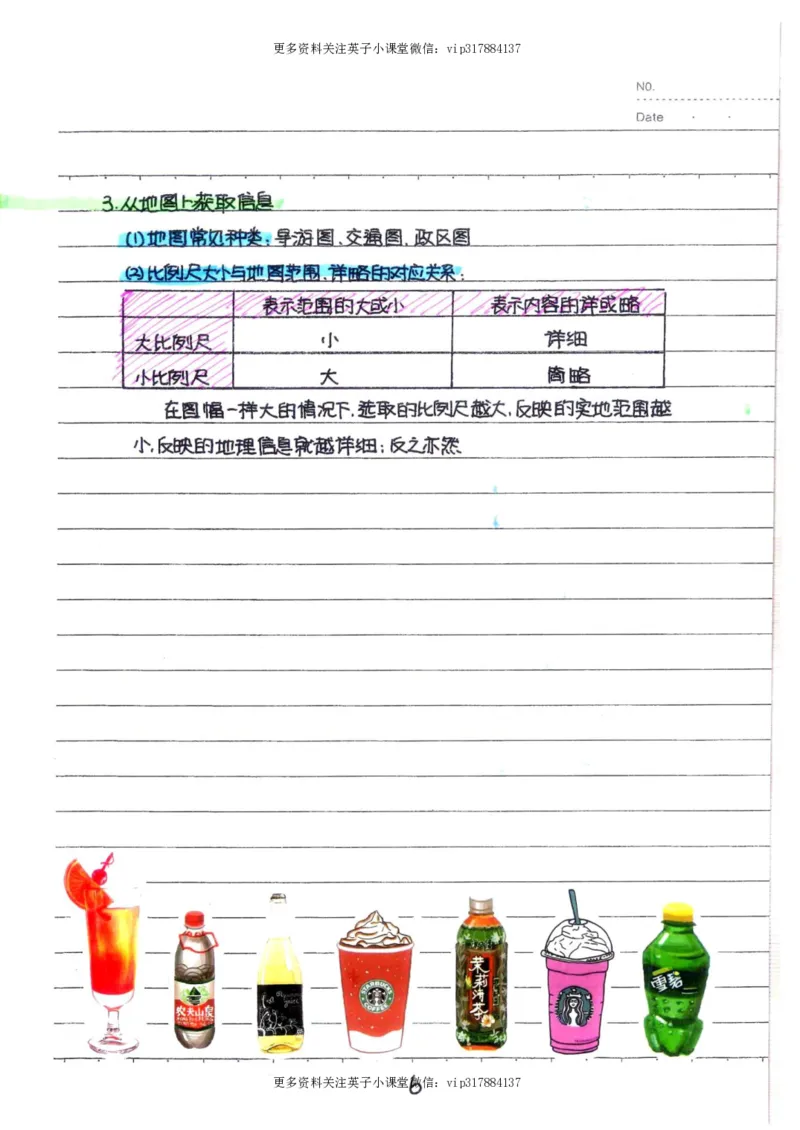 更多资料关注英子小课堂微信：vip317884137
NO.
Date
3.从地图上获取信息
(1)地图常见种类：导游图、交通图、政区图
(2)比例尺大小与地图范围、详略的对应关系：
表示范围的大或小 表示内容的详或略
大比例尺 小 详细
小比例尺 大 简略
在图幅一样大的情况下，选取的比例尺越大，反映的实地范围越
小，反映的地理信息就越详细；反之亦然
农夫山泉
STARBUCKS
COFFEE
茉莉清茶
雪碧
更多资料关注英子小课堂微信：vip317884137
6